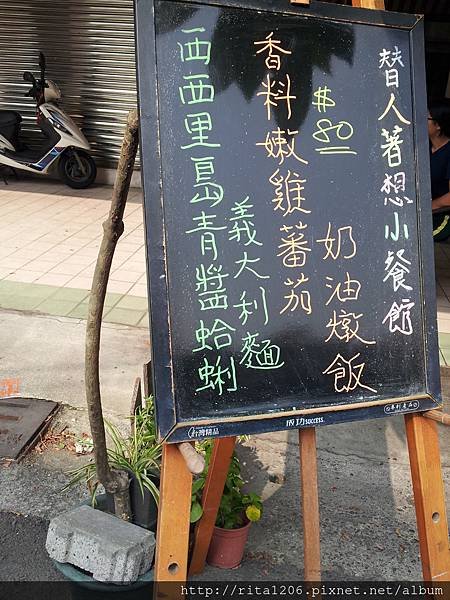 替人著想小餐館
$80
香料嫩雞蕃茄
奶油燉飯
西西里島青醬蛤蜊
義大利麵
台灣精品
成功 success
http://rita1206.pixnet.net/blog